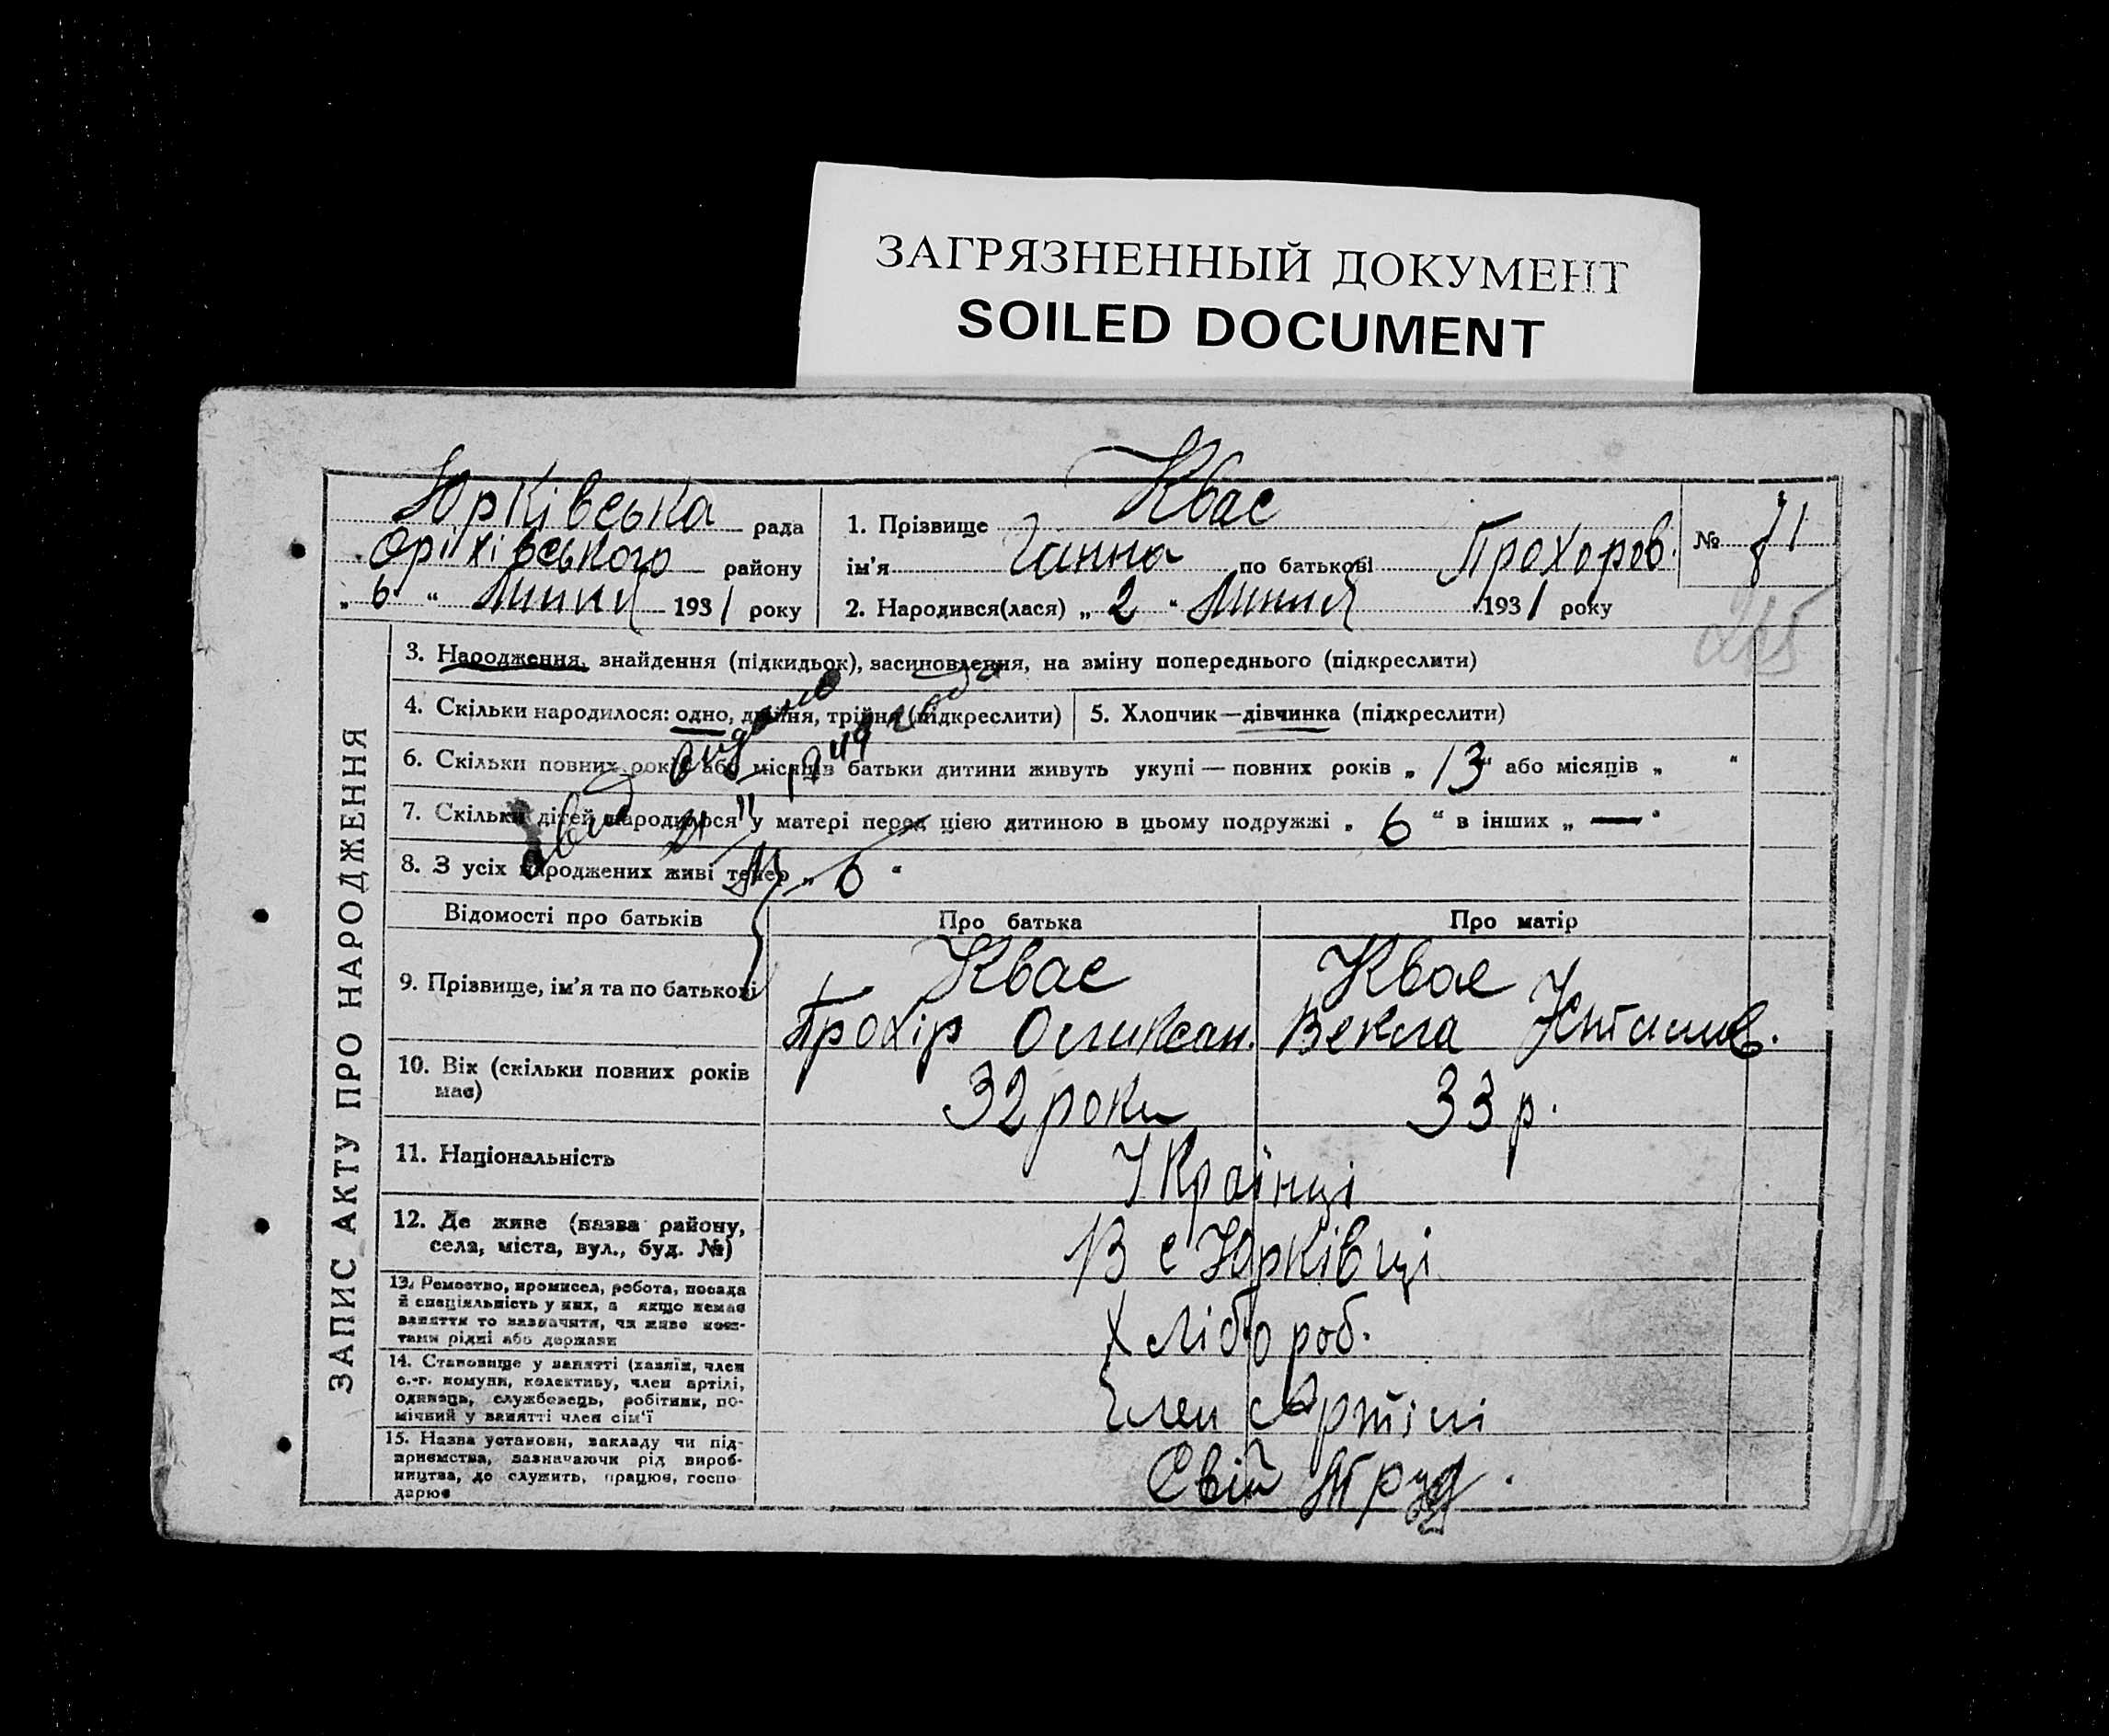 ЗАГРЯЗНЕННЫЙ ДОКУМЕНТ
SOILED DOCUMENT
Юрківська рада
Оріхівського району
„ 6 “ Липня 1931 року
1. Прізвище Квас
ім’я Ганна по батькові Прохоров.
2. Народився(лася) „ 2 “ Липня 1931 року
№ 71
ЗАПИС АКТУ ПРО НАРОДЖЕННЯ
3. Народження, знайдення (підкидьок), засиновлення, на зміну попереднього (підкреслити)
4. Скільки народилося: одно, двійня, трійня (підкреслити)
5. Хлопчик—дівчинка (підкреслити)
6. Скільки повних років або місяців батьки дитини живуть укупі — повних років „ 13 “ або місяців „ “
7. Скільки дітей народилося у матері перед цією дитиною в цьому подружжі „ 6 “ в інших „ — “
8. З усіх народжених живі тепер „ 6 “
Відомості про батьків
Про батька
Про матір
9. Прізвище, ім’я та по батькові
Квас
Прохір Олексан.
Квас
Векла
10. Вік (скільки повних років має)
32 роки
33 р.
11. Національність
Українці
12. Де живе (назва району,
села, міста, вул., буд. №)
В с Юрківці
13. Ремество, промисел, робота, посада
й спеціяльність у них, а якщо немає
заняття то зазначити, чи живе кош-
тами рідні або держави
Хлібороб.
14. Становище у занятті (хазяїн, член
с.-г. комуни, колективу, член артілі,
одинець, службовець, робітник, по-
мічний у занятті член сім’ї
Член Артілі
15. Назва установи, закладу чи під-
приємства, зазначаючи рід вироб-
ництва, де служить, працює, госпо-
дарює
Свій труд.